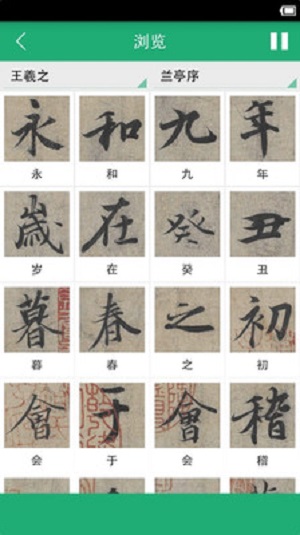 浏览
王羲之 兰亭序
永 和 九 年
永 和 九 年
歲 在 癸 丑
岁 在 癸 丑
暮 春 之 初
暮 春 之 初
會 于 會 稽
会 于 会 稽